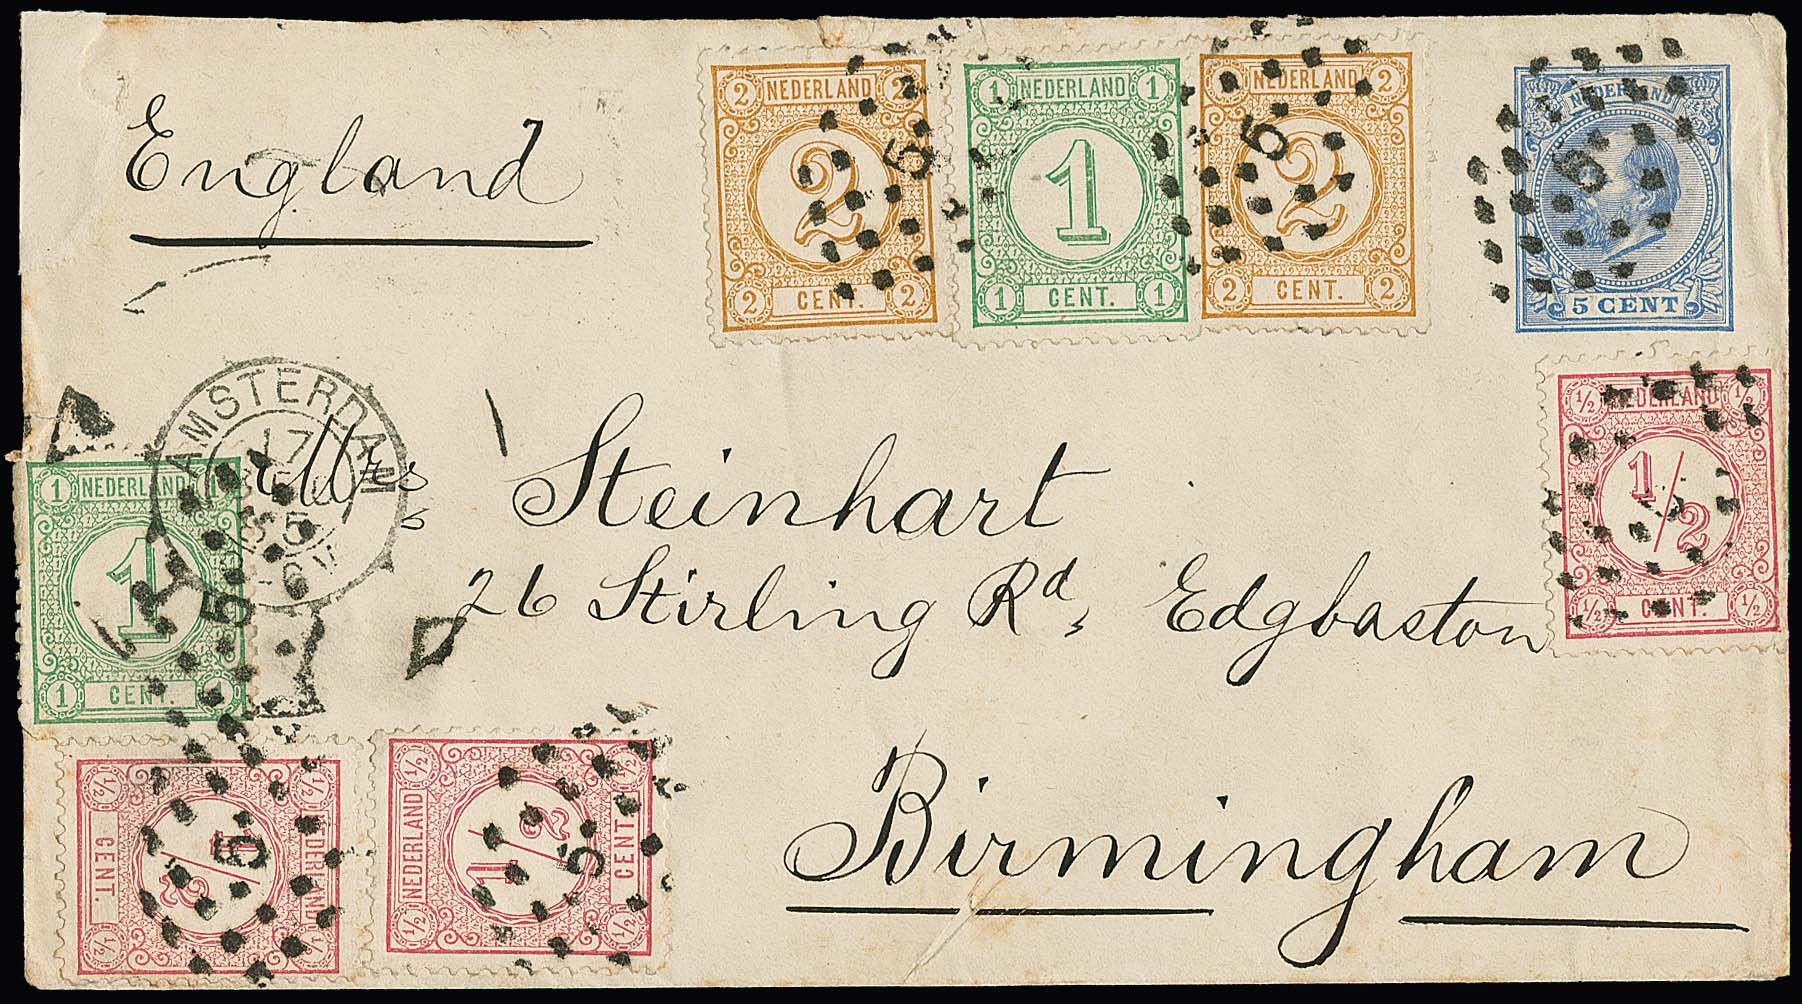 England
2 NEDERLAND 2
2
2 CENT. 2
5
1 NEDERLAND 1
1
1 CENT. 1
NEDERLAND 2
2
2 CENT. 2
5
NEDERLAND
5
5 CENT
½ NEDERLAND ½
1/2
½ CENT. ½
AMSTERDAM
17
85
Mrs Steinhart
26 Stirling Rd, Edgbaston
Birmingham
1 NEDERLAND 1
1
1 CENT. 1
5
½ NEDERLAND ½
1/2
½ CENT. ½
5
½ NEDERLAND ½
1/2
½ CENT ½
5